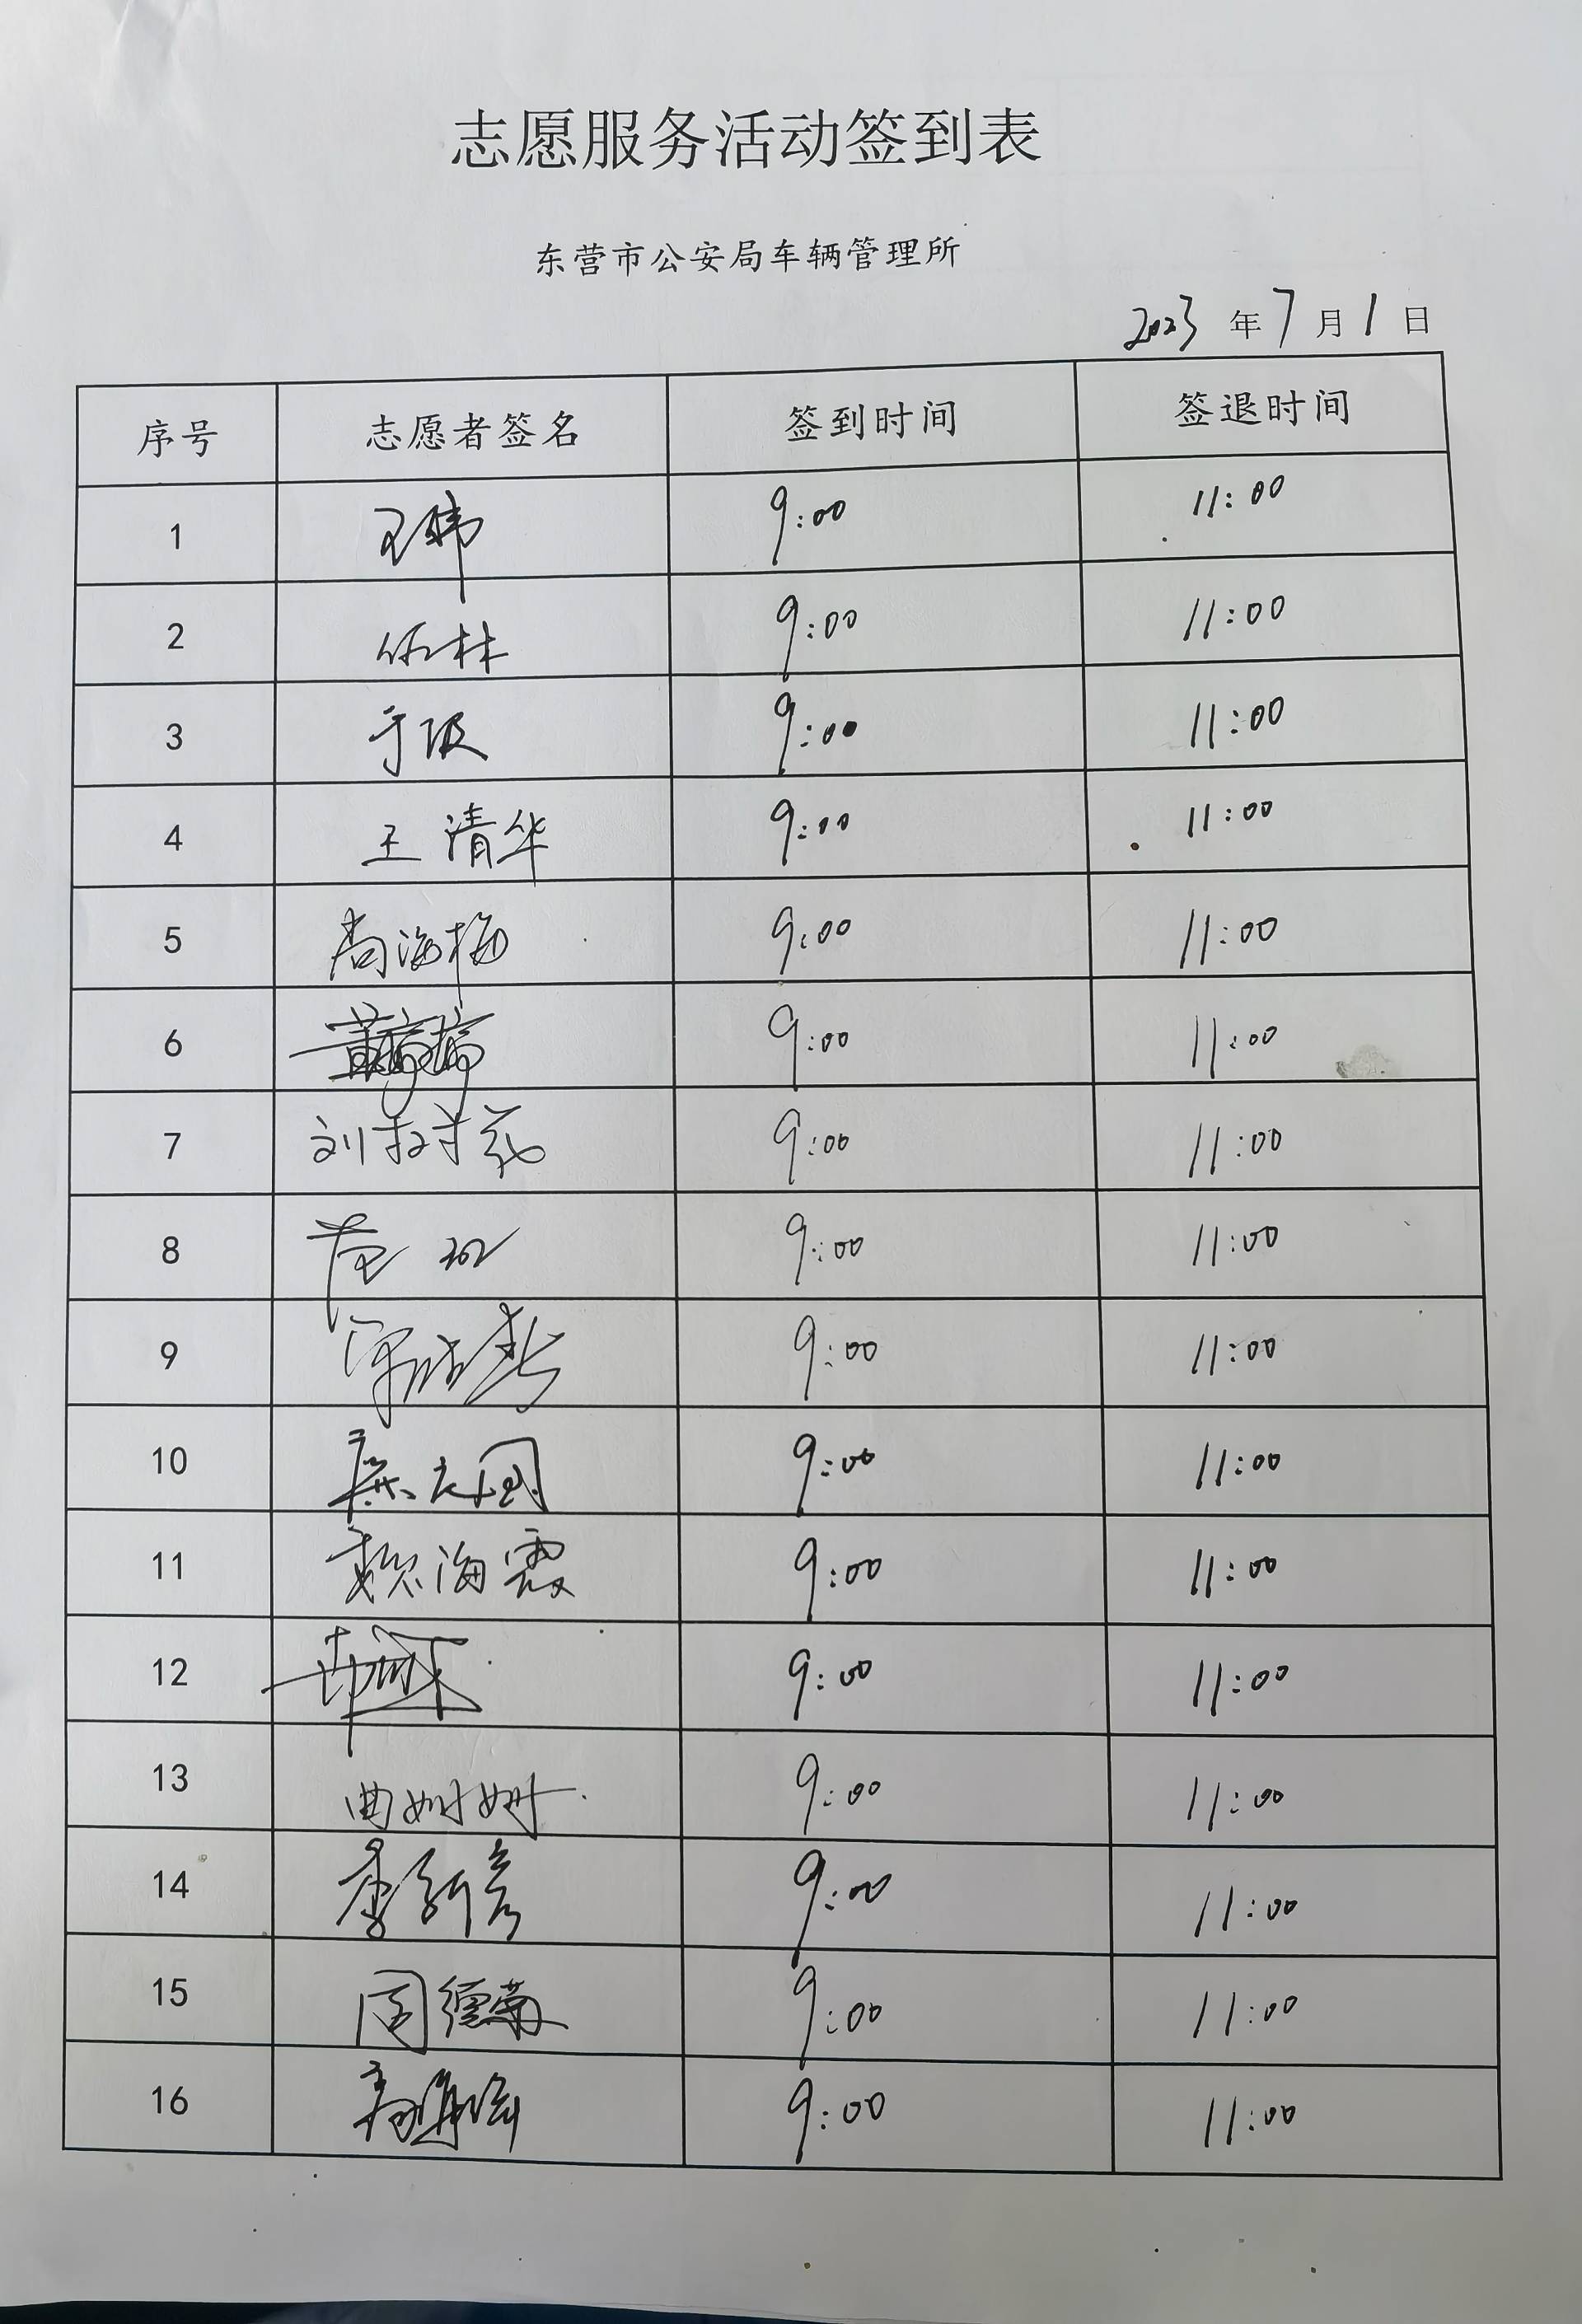 志愿服务活动签到表
东营市公安局车辆管理所
2023 年 7 月 1 日
序号 志愿者签名 签到时间 签退时间
1 王伟 9:00 11:00
2 林 9:00 11:00
3 于波 9:00 11:00
4 王清华 9:00 11:00
5 尚海梅 9:00 11:00
6 9:00 11:00
7 刘树花 9:00 11:00
8 9:00 11:00
9 9:00 11:00
10 国 9:00 11:00
11 海霞 9:00 11:00
12 9:00 11:00
13 曲姗姗 9:00 11:00
14 9:00 11:00
15 周德菊 9:00 11:00
16 9:00 11:00